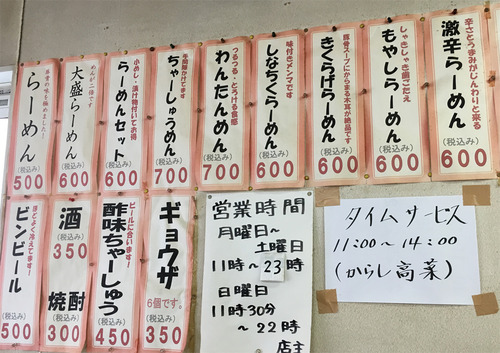 辛さとうまみがじんわりと来る
激辛らーめん
(税込み)
600
しゃきしゃき歯ごたえ
もやしらーめん
(税込み)
600
豚骨スープにからまる木耳が絶品です
きくらげらーめん
(税込み)
600
味付きメンマです
しなちくらーめん
(税込み)
600
つるつる・とろける食感
わんたんめん
(税込み)
700
手間掛かけてます
ちゃーしゅうめん
(税込み)
700
小めし・漬け物付いてお得
らーめんセット
(税込み)
600
めんが二倍です
大盛らーめん
(税込み)
600
らーめん
(税込み)
500
ギョウザ
6個です。
(税込み)
350
ビールに合います!
酢味ちゃーしゅう
(税込み)
450
酒
(税込み)
350
焼酎
(税込み)
300
ほどよく冷えてます!
ビンビール
(税込み)
500
営業時間
月曜日~
土曜日
11時~23時
日曜日
11時30分
~22時
店主
タイムサービス
11:00~14:00
(からし高菜)